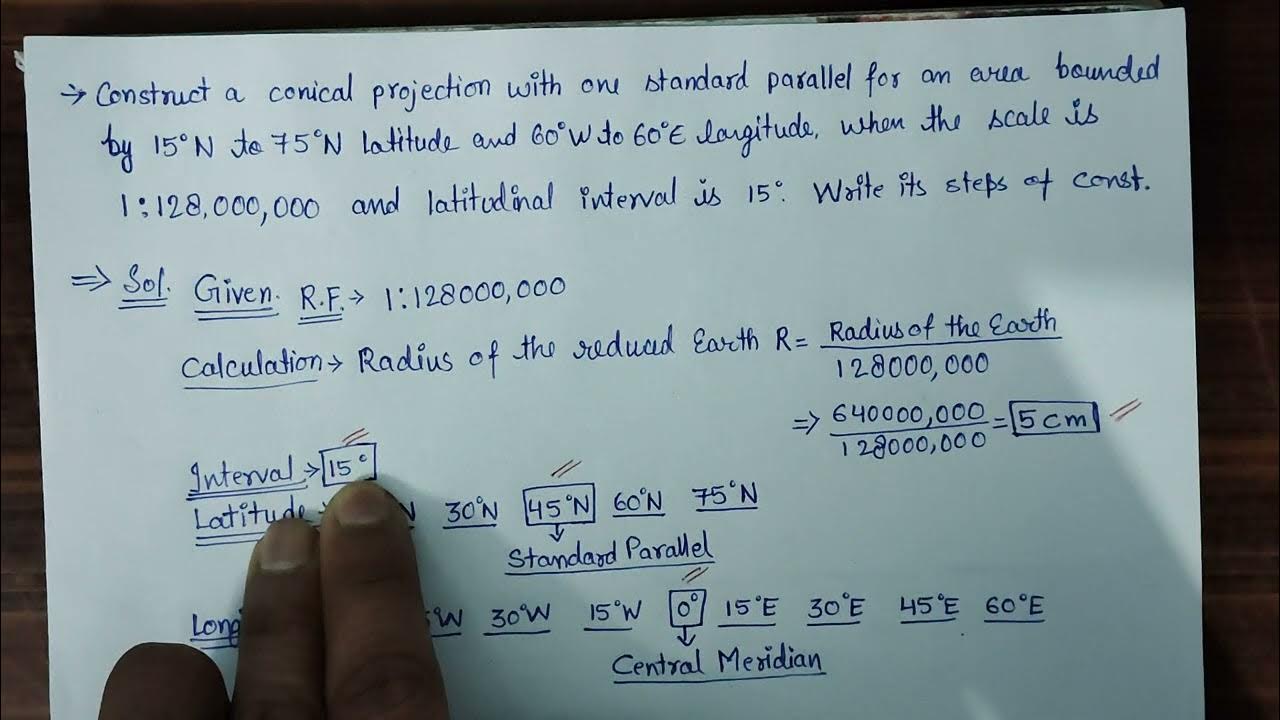 → Construct a conical projection with one standard parallel for an area bounded
by 15°N to 75°N latitude and 60°W to 60°E longitude, when the scale is
1:128,000,000 and latitudinal interval is 15°. Write its steps of const.
⇒ Sol. Given. R.F.→ 1:128000,000
Calculation→ Radius of the reduced Earth R= Radius of the Earth
128000,000
⇒ 640000,000 = 5 cm
128000,000
Interval→ 15°
Latitude N 30°N 45°N 60°N 75°N
↓
Standard Parallel
Long W 30°W 15°W 0° 15°E 30°E 45°E 60°E
↓
Central Meridian